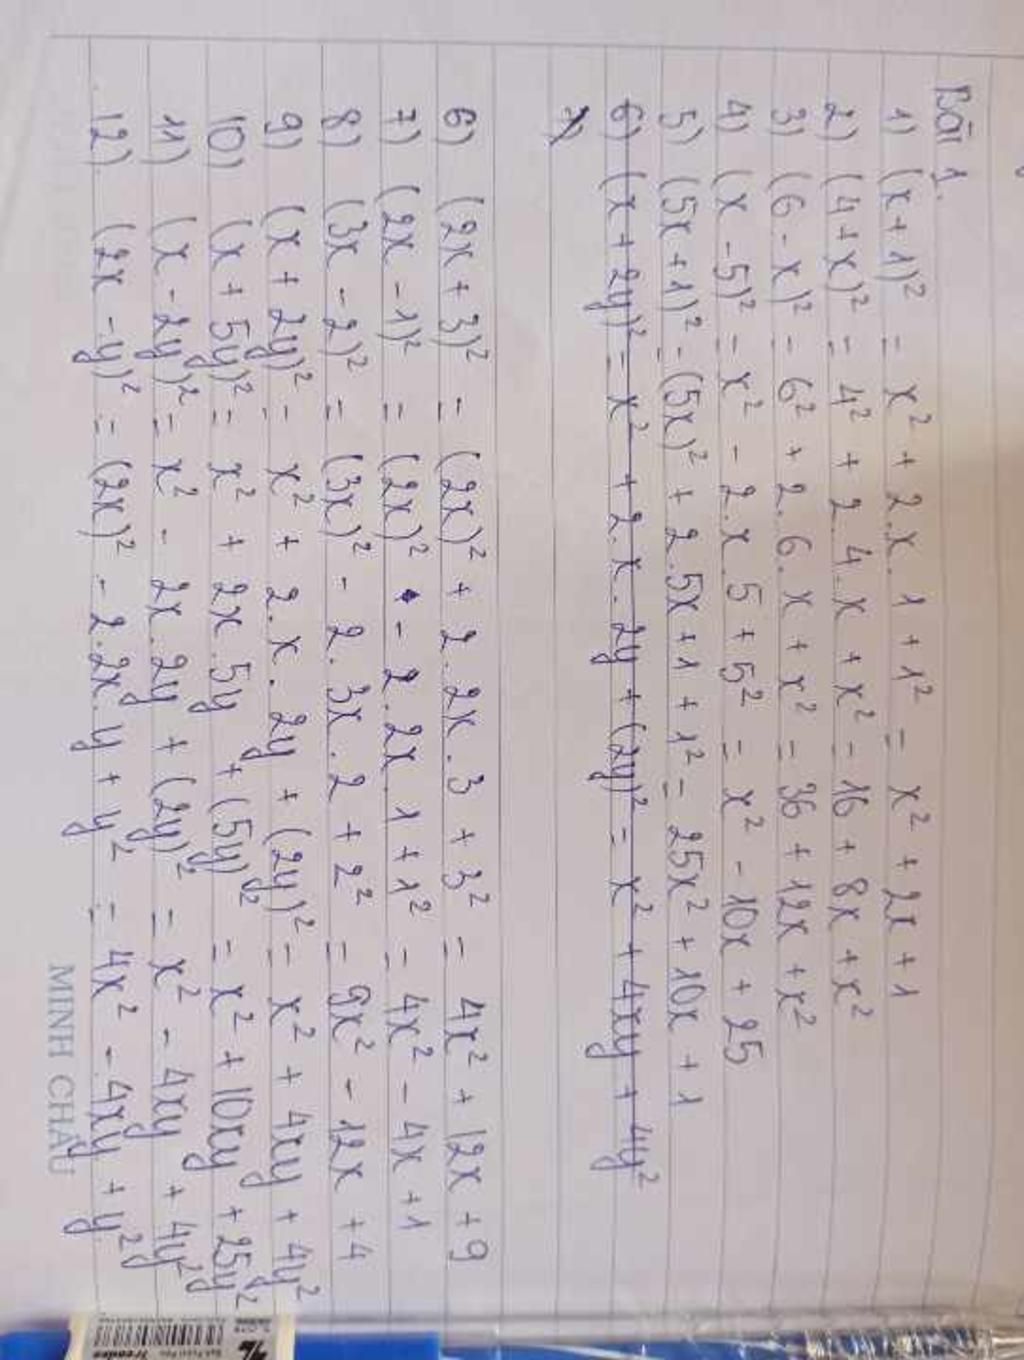 Bài 1.
1) (x+1)² = x² + 2.x.1 + 1² = x² + 2x + 1
2) (4+x)² = 4² + 2.4.x + x² = 16 + 8x + x²
3) (6-x)² = 6² + 2.6.x + x² = 36 + 12x + x²
4) (x-5)² = x² - 2.x.5 + 5² = x² - 10x + 25
5) (5x+1)² = (5x)² + 2.5x+1 + 1² = 25x² + 10x + 1
6) (x+2y)² = x² + 2.x.2y + (2y)² = x² + 4xy + 4y²
7)
6) (2x+3)² = (2x)² + 2.2x.3 + 3² = 4x² + 12x + 9
7) (2x-1)² = (2x)² - 2.2x.1 + 1² = 4x² - 4x + 1
8) (3x-2)² = (3x)² - 2.3x.2 + 2² = 9x² - 12x + 4
9) (x+2y)² = x² + 2.x.2y + (2y)² = x² + 4xy + 4y²
10) (x+5y)² = x² + 2x.5y + (5y)² = x² + 10xy + 25y²
11) (x-2y)² = x² - 2x.2y + (2y)² = x² - 4xy + 4y²
12) (2x-y)² = (2x)² - 2.2x.y + y² = 4x² - 4xy + y²
MINH CHÂU